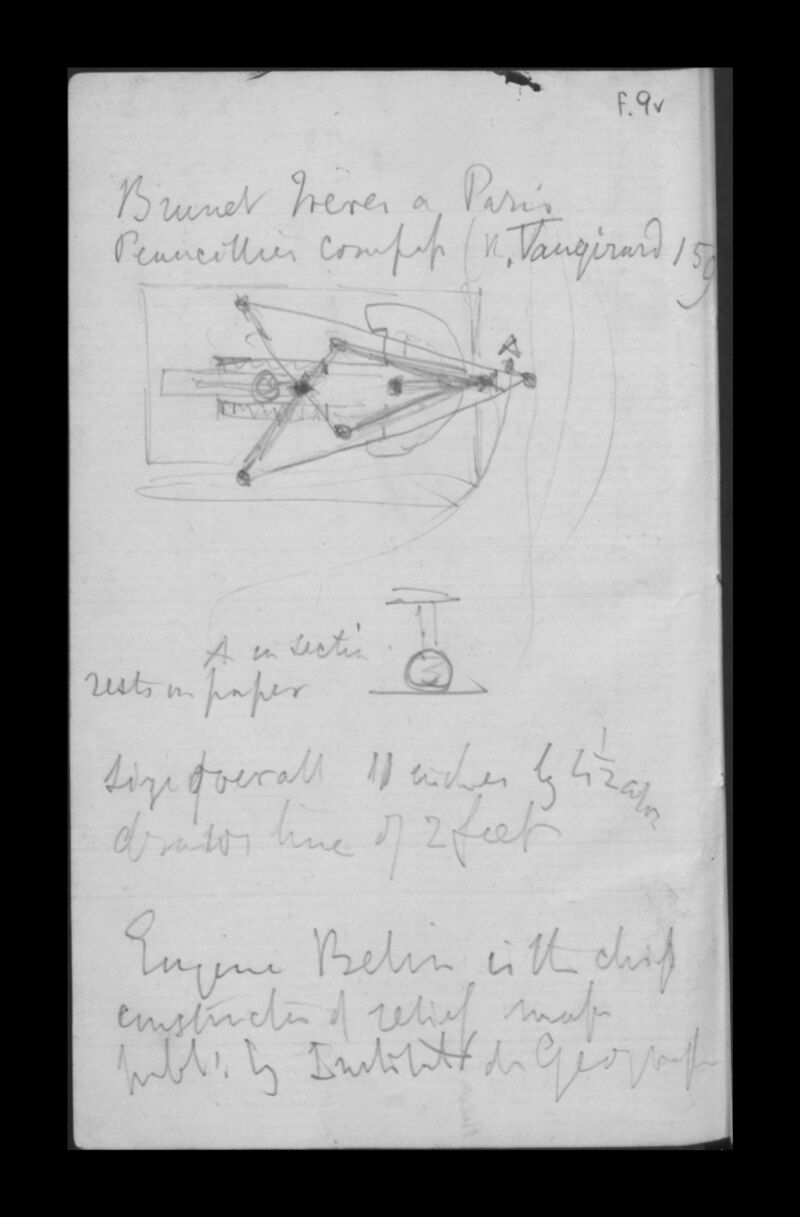 F.9v
Brunet Frères a Paris
Peaucillier compass (R. Vaugirard 159
A
A in section
rests on paper
size overall 11 inches by
draws line of 2 feet
Eugene Belin is the chief
constructor of relief maps
publ. by Institut de Geograph